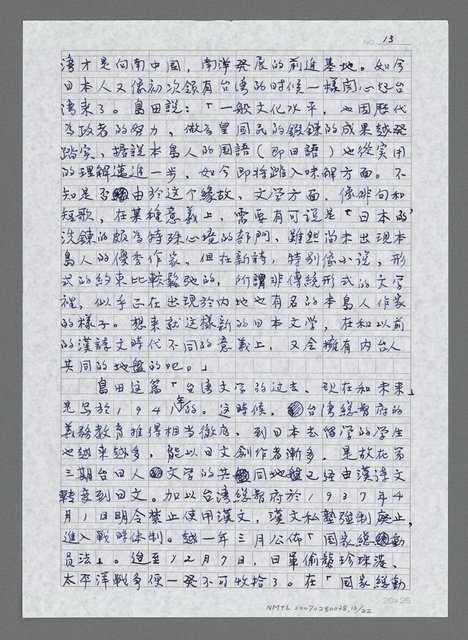 NO. 13
湾才是向南中國，南洋発展的前進基地。如今
日本人又像初次領有台湾的时候一樣関心好台
湾来了。島田説：「一般文化水平，也因歷代
为政者的努力、做为皇国民的鍛錬的成果越発
踏実，据説本島人的国語（即日語）也從実用
的理解邁進一步，如今即将踏入味解方面。不
知是否由於这个緣故，文学方面，像俳句和
短歌，在某種意義上，需要有可説是「日本的」
洗鍊的頗为特殊心境的部門，雖然尚未出現本
島人的優秀作家，但在新詩，特別像小説，形
式的約束比較鬆弛的，所謂非傳統形式的文学
裡，似乎正在出現於內地也有名的本島人作家
的樣子。想来就这樣新的日本文学，在和以前
的漢詩文時代不同的意義上，又会擁有内台人
共同的地盤的吧。」
島田这篇「台湾文学的过去、現在和未来」
是写於1941年的。这時候，台湾總督府的
義務教育推得相当徹底，到日本去留学的学生
也越来越多，能以日文創作者漸多，是故在第
三期台日人文学的共同地盤已経由漢詩文
轉変到日文。加以台湾總督府於1937年4
月1日明令禁止使用漢文，漢文私塾強制廃止，
進入戰時体制。越一年三月公佈「国家總動
員法」。迨至12月7日，日軍偷襲珍珠港、
太平洋戰爭便一発不可收拾了。在「国家總動
20×25
NMTL 20070280038 13/22